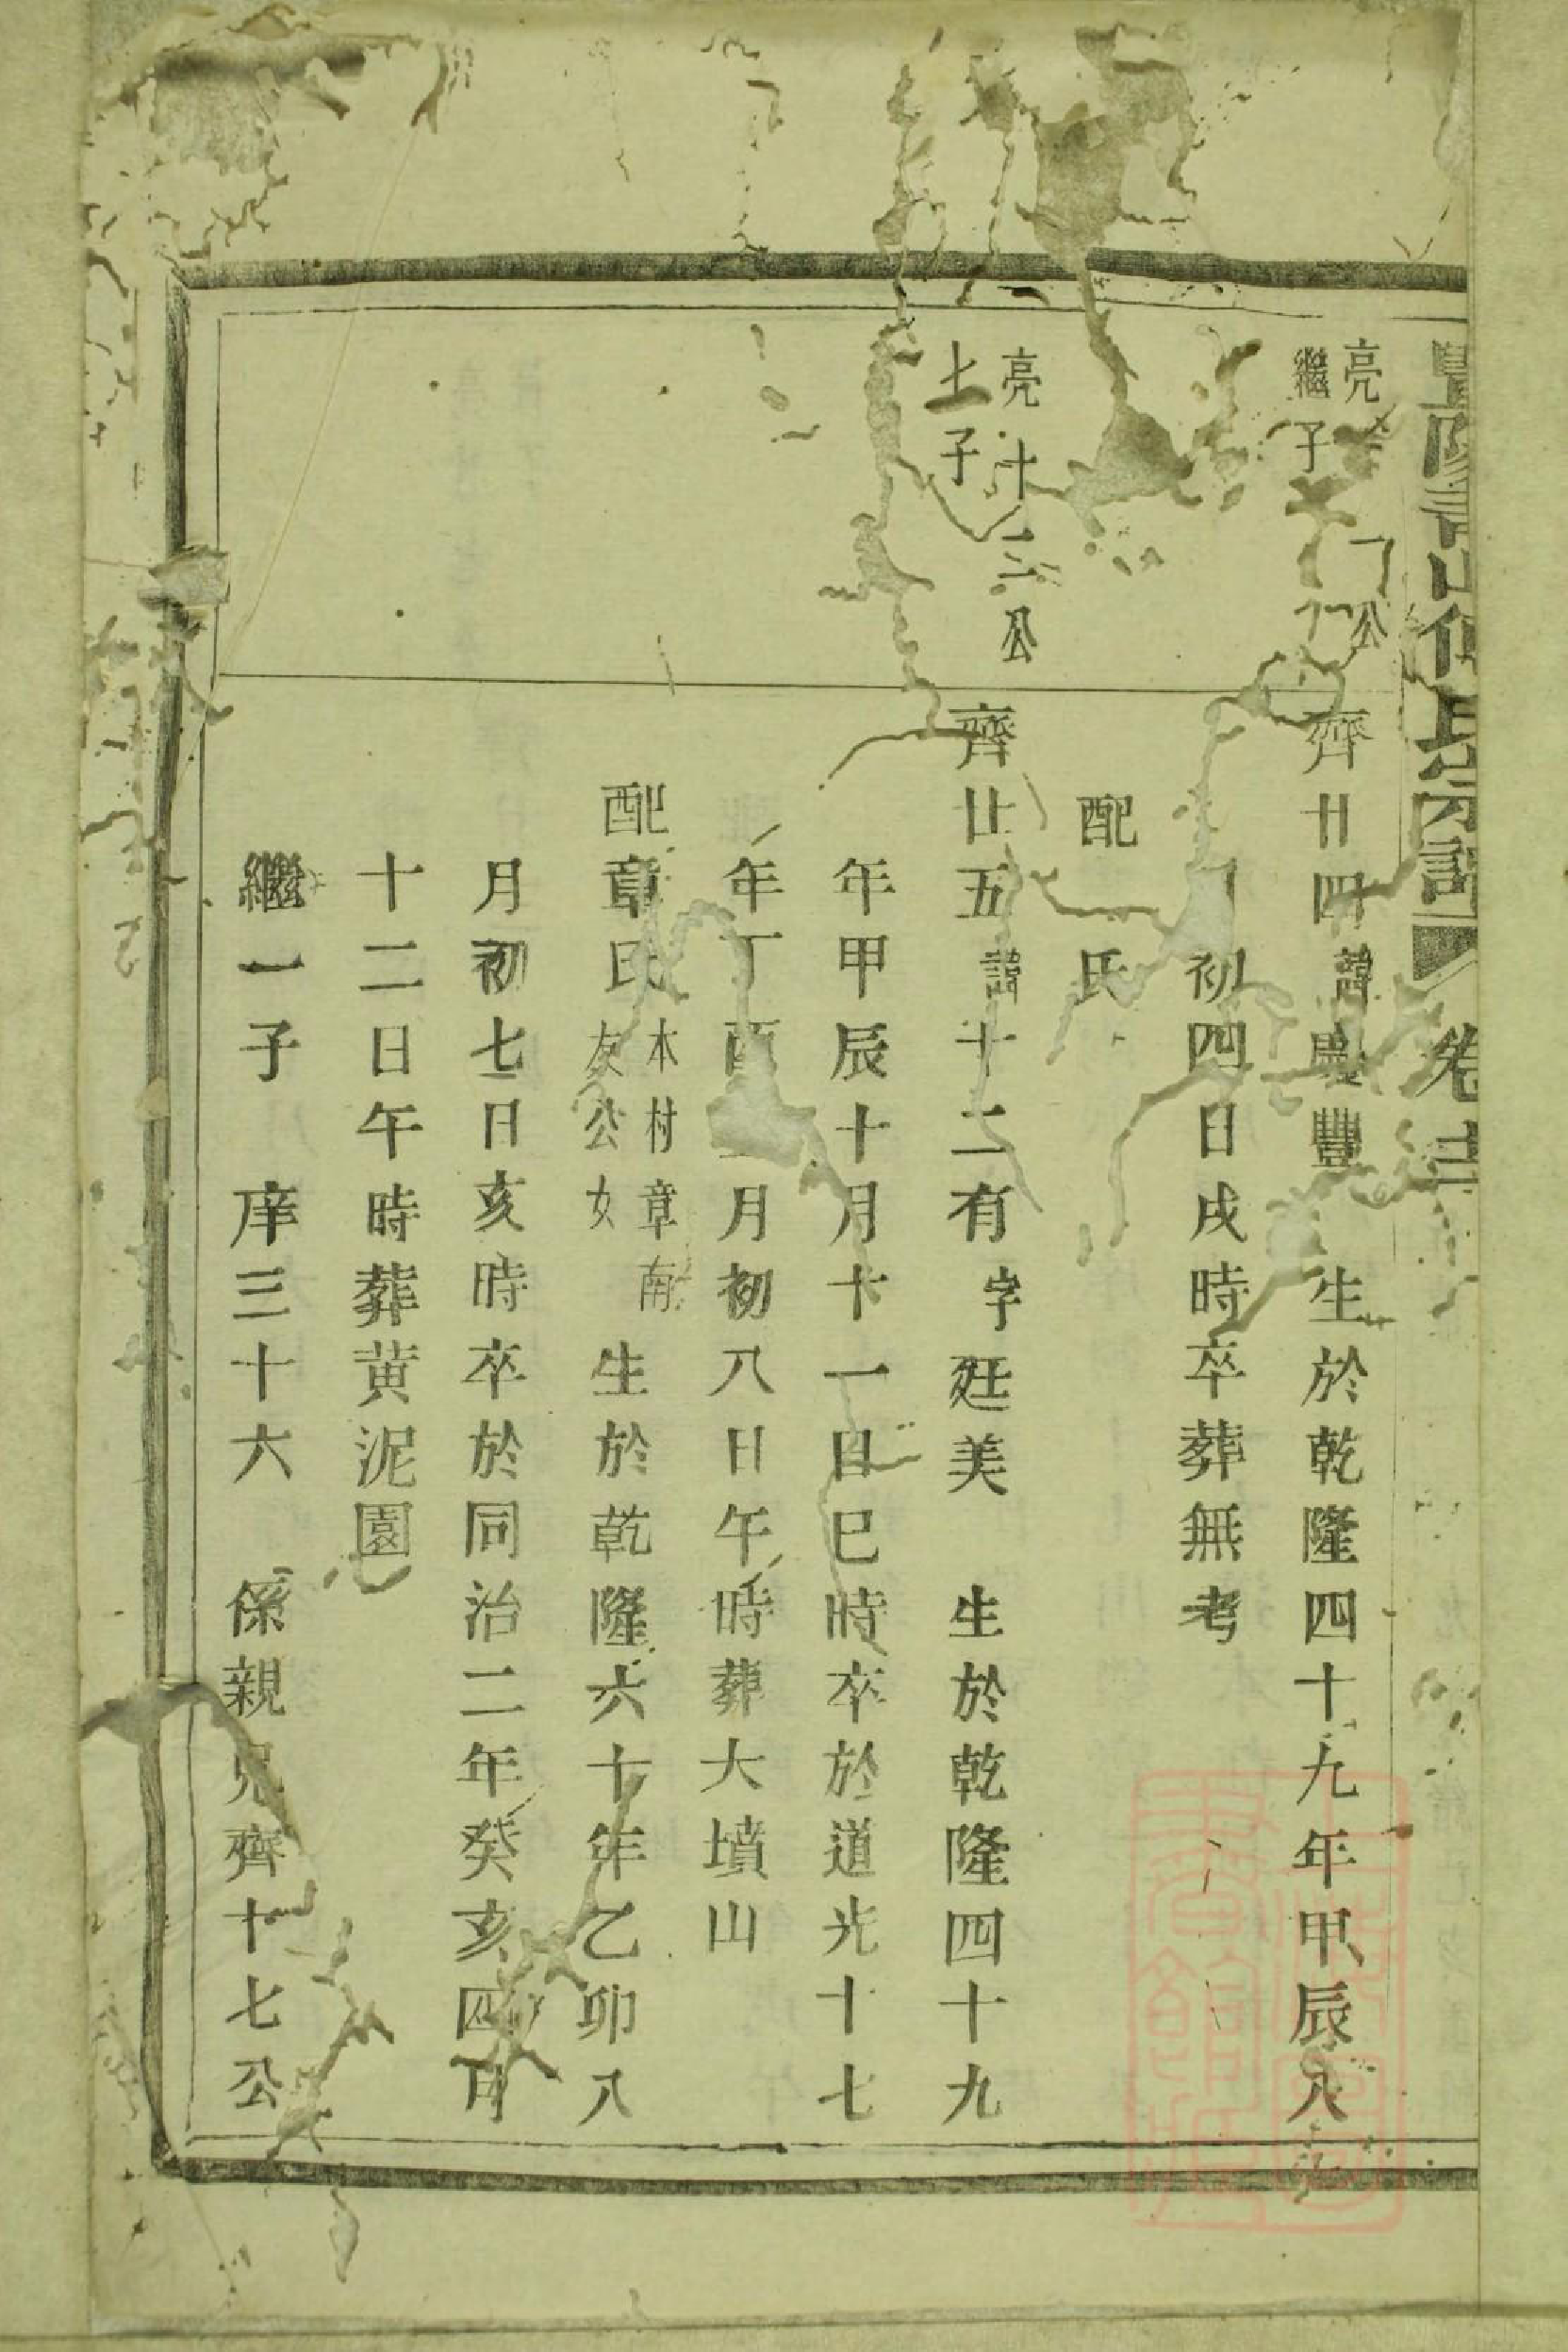 氏宗譜 卷
亮 公
繼子
齊廿四諱 豐 生於乾隆四十九年甲辰八
月初四日戌時卒葬無考
配 氏
亮十二公
七子
齊廿五諱十二有字廷美 生於乾隆四十九
年甲辰十月十一日巳時卒於道光十七
年丁酉 月初八日午時葬大墳山
配章氏 木村章南
友公女 生於乾隆六十年乙卯八
月初七日亥時卒於同治二年癸亥四月
十二日午時葬黄泥園
繼一子 庠三十六 係親兄齊十七公